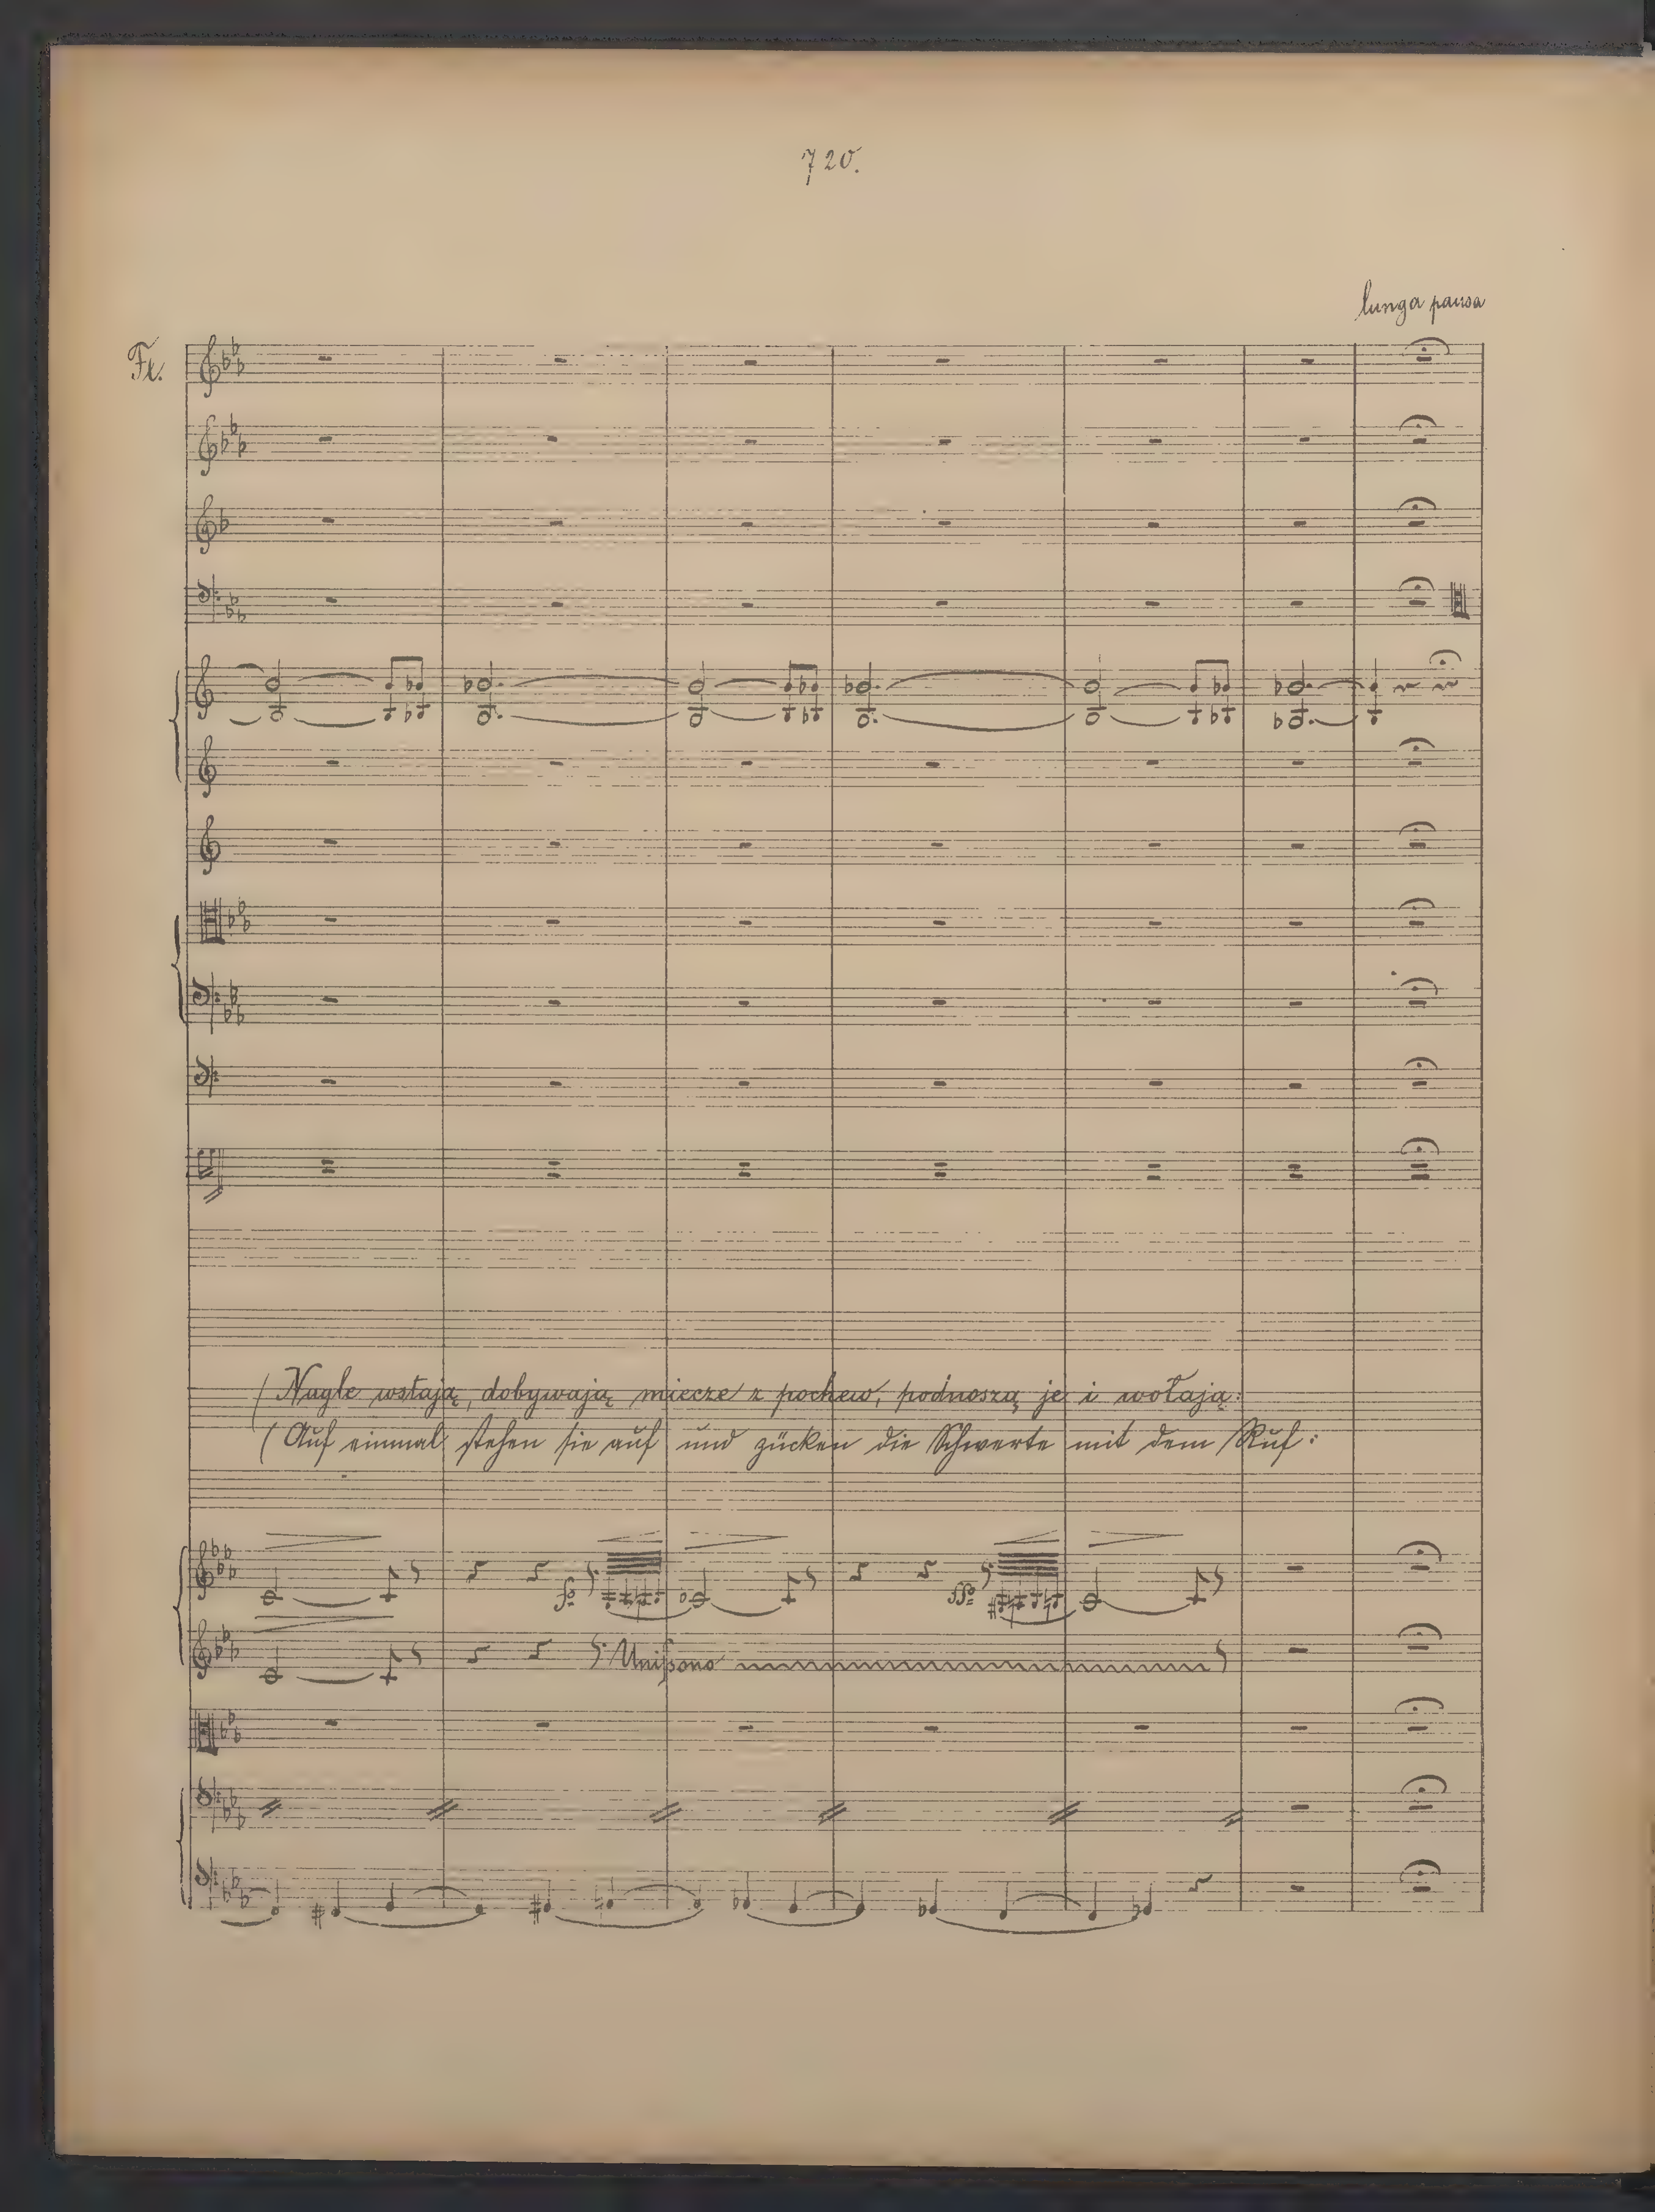 720.
lunga pausa
Fl.
(Nagle wstają, dobywają miecze z pochew, podnoszą je i wołają:
(Auf einmal stehen sie auf und zücken die Schwerte mit dem Ruf:
Unissono